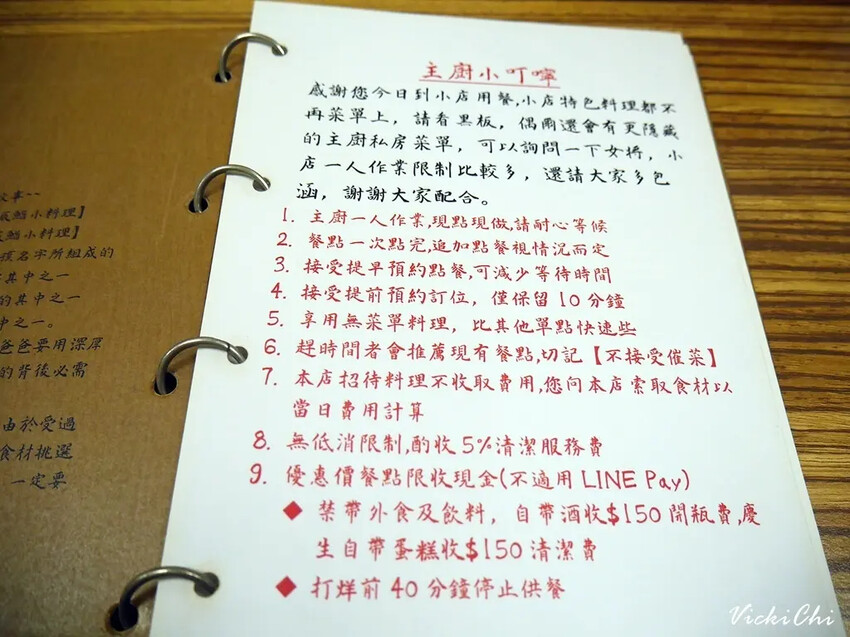 主廚小叮嚀
感謝您今日到小店用餐,小店特色料理都不
再菜單上，請看黑板，偶爾還會有更隱藏
的主廚私房菜單，可以詢問一下女將，小
店一人作業限制比較多，還請大家多包
涵，謝謝大家配合。
1. 主廚一人作業,現點現做,請耐心等候
2. 餐點一次點完,追加點餐視情況而定
3. 接受提早預約點餐,可減少等待時間
4. 接受提前預約訂位，僅保留10分鐘
5. 享用無菜單料理，比其他單點快速些
6. 趕時間者會推薦現有餐點,切記【不接受催菜】
7. 本店招待料理不收取費用,您向本店索取食材以
當日費用計算
8. 無低消限制,酌收5%清潔服務費
9. 優惠價餐點限收現金(不適用LINE Pay)
◆ 禁帶外食及飲料，自帶酒收$150開瓶費,慶
生自帶蛋糕收$150清潔費
◆ 打烊前40分鐘停止供餐
事~~
小料理】
小料理】
名字所組成的
其中之一
的其中之一
中之一。
爸爸要用深犀
的背後必需
由於愛過
食材挑選
一定要
VickiChi